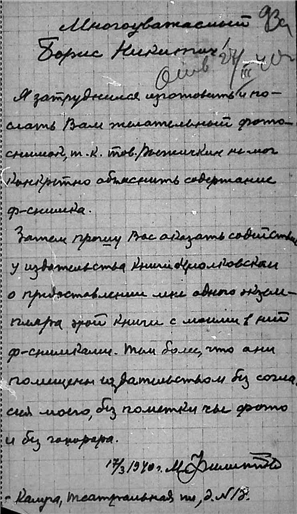 Многоуважаемый
Борис Никитич!
Я затруднился изготовить и по-
слать Вам желательный фото-
снимок, т.к. тов. не мог
конкретно объяснить содержание
ф-снимка.
Затем прошу Вас оказать содействие
у издательства книги Циолковский
о предоставлении мне одного экзем-
пляра этой книги с моими в ней
ф-снимками. Тем более, что они
помещены издательством без согла-
сия моего, без пометки чье фото
и без гонорара.
17/3 1940 г.
Калуга, Театральная пл, д. №